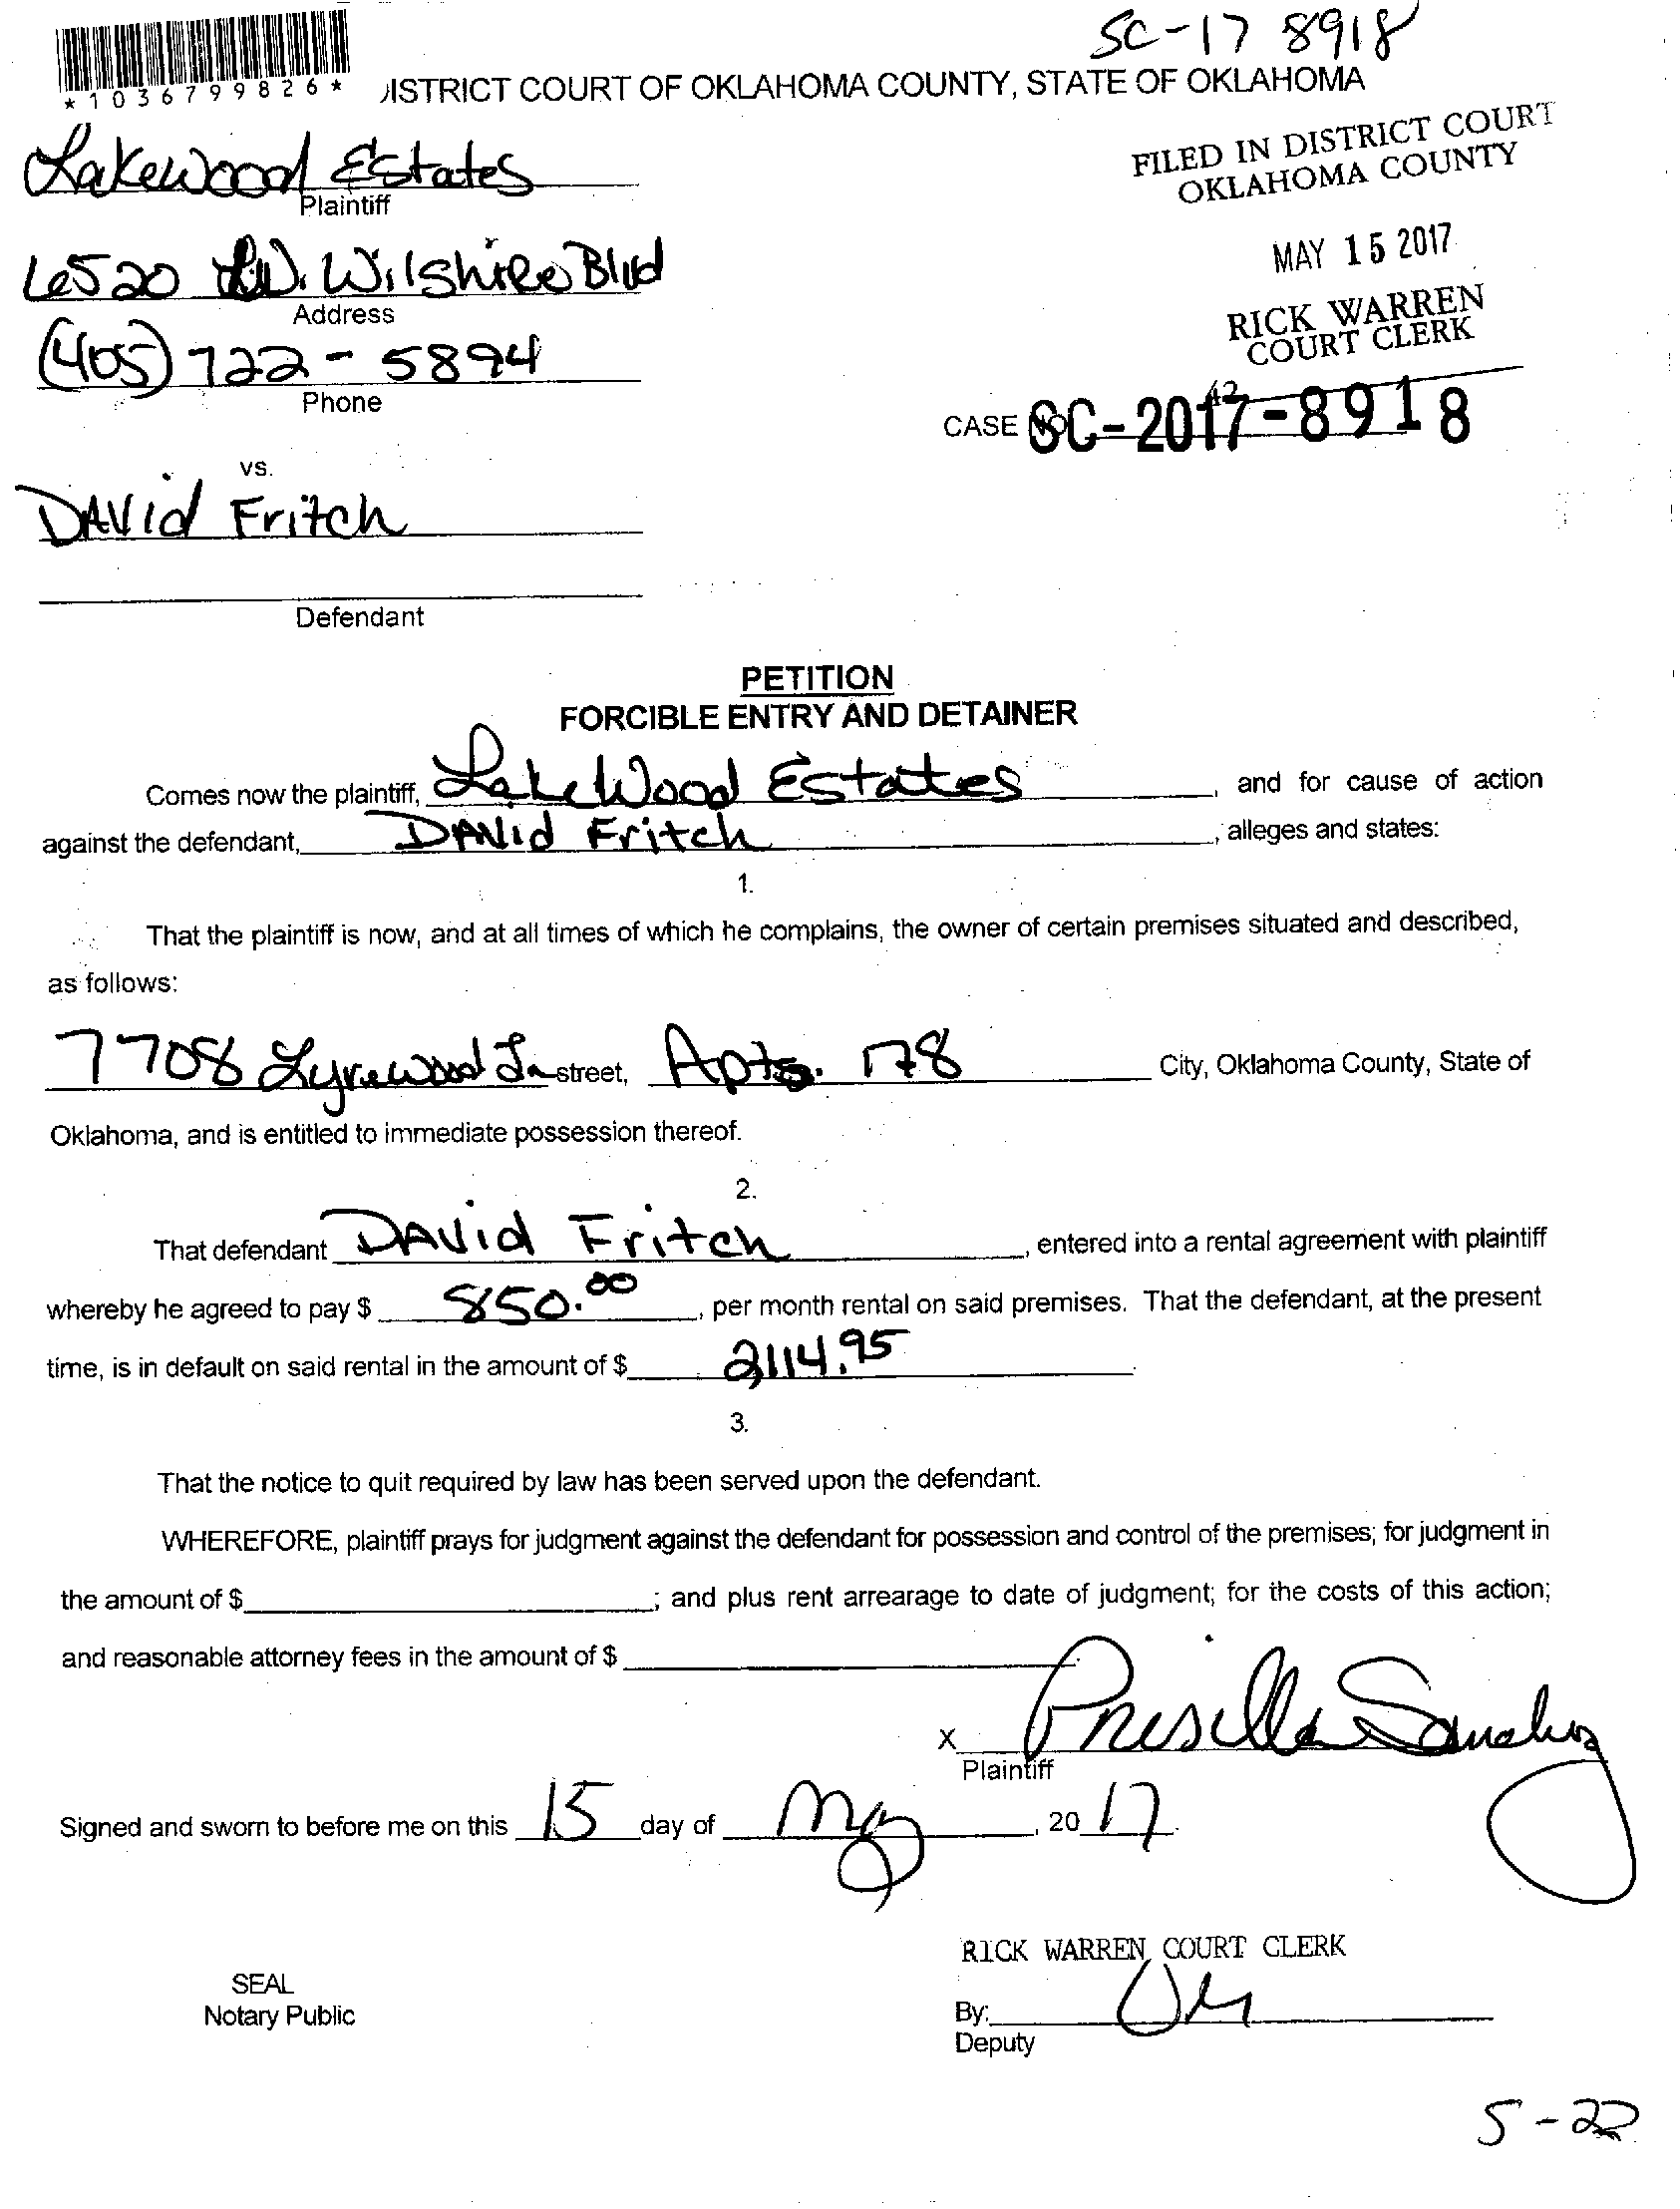 SC-17 8918
*1036799826*
ISTRICT COURT OF OKLAHOMA COUNTY, STATE OF OKLAHOMA
FILED IN DISTRICT COURT
OKLAHOMA COUNTY
MAY 15 2017
RICK WARREN
COURT CLERK
42
CASE NO SC-2017-8918
Lakewood Estates
Plaintiff
6520 W. Wilshire Blvd
Address
(405) 722-5894
Phone
vs.
DAVid Fritch
Defendant
PETITION
FORCIBLE ENTRY AND DETAINER
Comes now the plaintiff, LakeWood Estates, and for cause of action
against the defendant, DAVid Fritch, alleges and states:
1.
That the plaintiff is now, and at all times of which he complains, the owner of certain premises situated and described,
as follows:
7708 Lyrewood Ln street, Apts. 178 City, Oklahoma County, State of
Oklahoma, and is entitled to immediate possession thereof.
2.
That defendant DAVid Fritch, entered into a rental agreement with plaintiff
whereby he agreed to pay $ 850.00, per month rental on said premises. That the defendant, at the present
time, is in default on said rental in the amount of $ 2114.95.
3.
That the notice to quit required by law has been served upon the defendant.
WHEREFORE, plaintiff prays for judgment against the defendant for possession and control of the premises; for judgment in
the amount of $ ; and plus rent arrearage to date of judgment; for the costs of this action;
and reasonable attorney fees in the amount of $
X Prisilla Sanchez
Plaintiff
Signed and sworn to before me on this 15 day of May, 20 17
RICK WARREN, COURT CLERK
SEAL
Notary Public
By:
Deputy
5-22